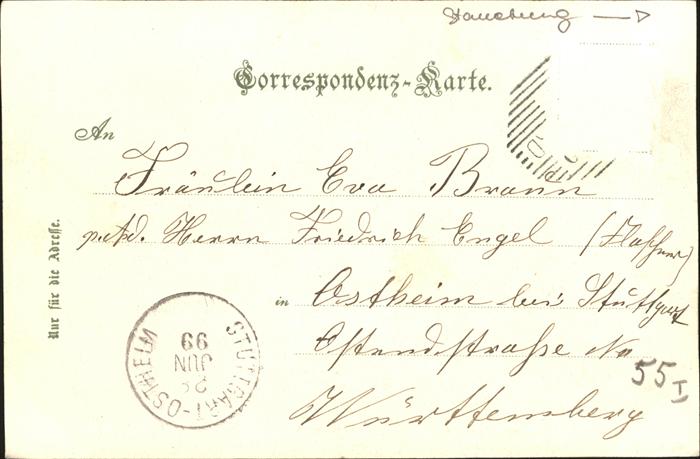 Correspondenz-Karte.
An
Fräulein Eva Braun
Herrn Friedrich Engel
in Ostheim bei Stuttgart
Ostendstraße No
55 I
Württemberg
Nur für die Adresse.
STUTTGART-OSTHEIM
26 JUN 99